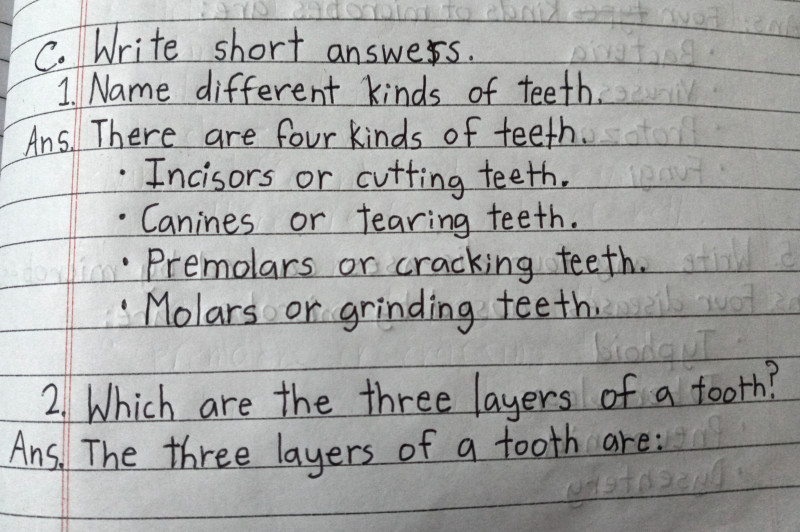 C. Write short answers.
1. Name different kinds of teeth.
Ans. There are four kinds of teeth.
• Incisors or cutting teeth.
• Canines or tearing teeth.
• Premolars or cracking teeth.
• Molars or grinding teeth.
2. Which are the three layers of a tooth?
Ans. The three layers of a tooth are: